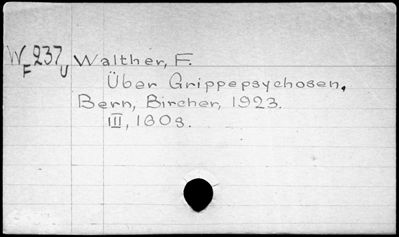 W 237 Walther, F.
F U
Über Grippepsychosen.
Bern, Bircher, 1923.
III, 160s.